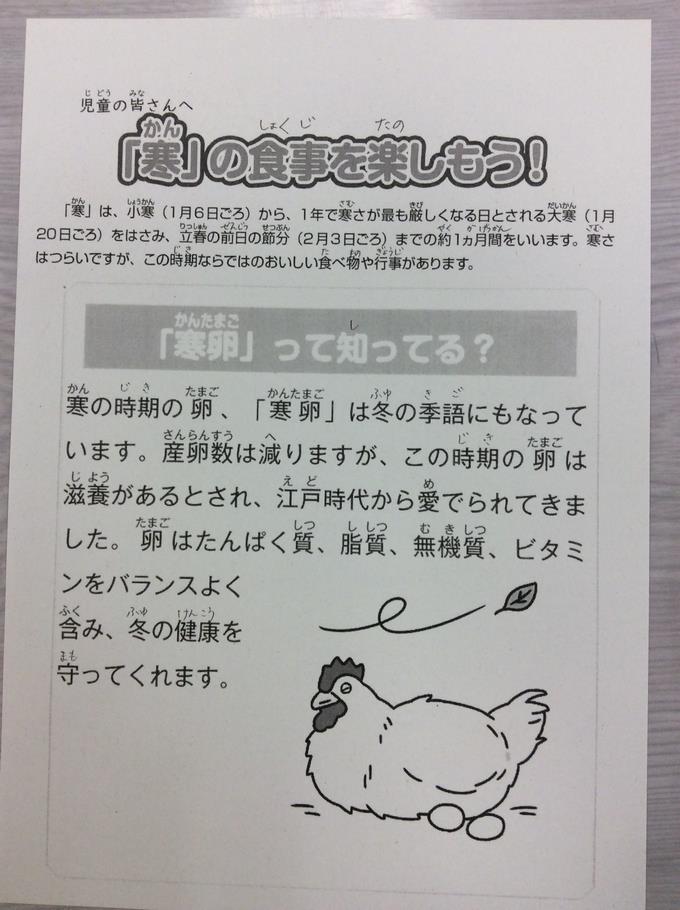 児童の皆さんへ
「寒」の食事を楽しもう!
「寒」は、小寒（1月6日ごろ）から、1年で寒さが最も厳しくなる日とされる大寒（1月
20日ごろ）をはさみ、立春の前日の節分（2月3日ごろ）までの約1ヵ月間をいいます。寒さ
はつらいですが、この時期ならではのおいしい食べ物や行事があります。
「寒卵」って知ってる？
寒の時期の卵、「寒卵」は冬の季語にもなって
います。産卵数は減りますが、この時期の卵は
滋養があるとされ、江戸時代から愛でられてきま
した。卵はたんぱく質、脂質、無機質、ビタミ
ンをバランスよく
含み、冬の健康を
守ってくれます。